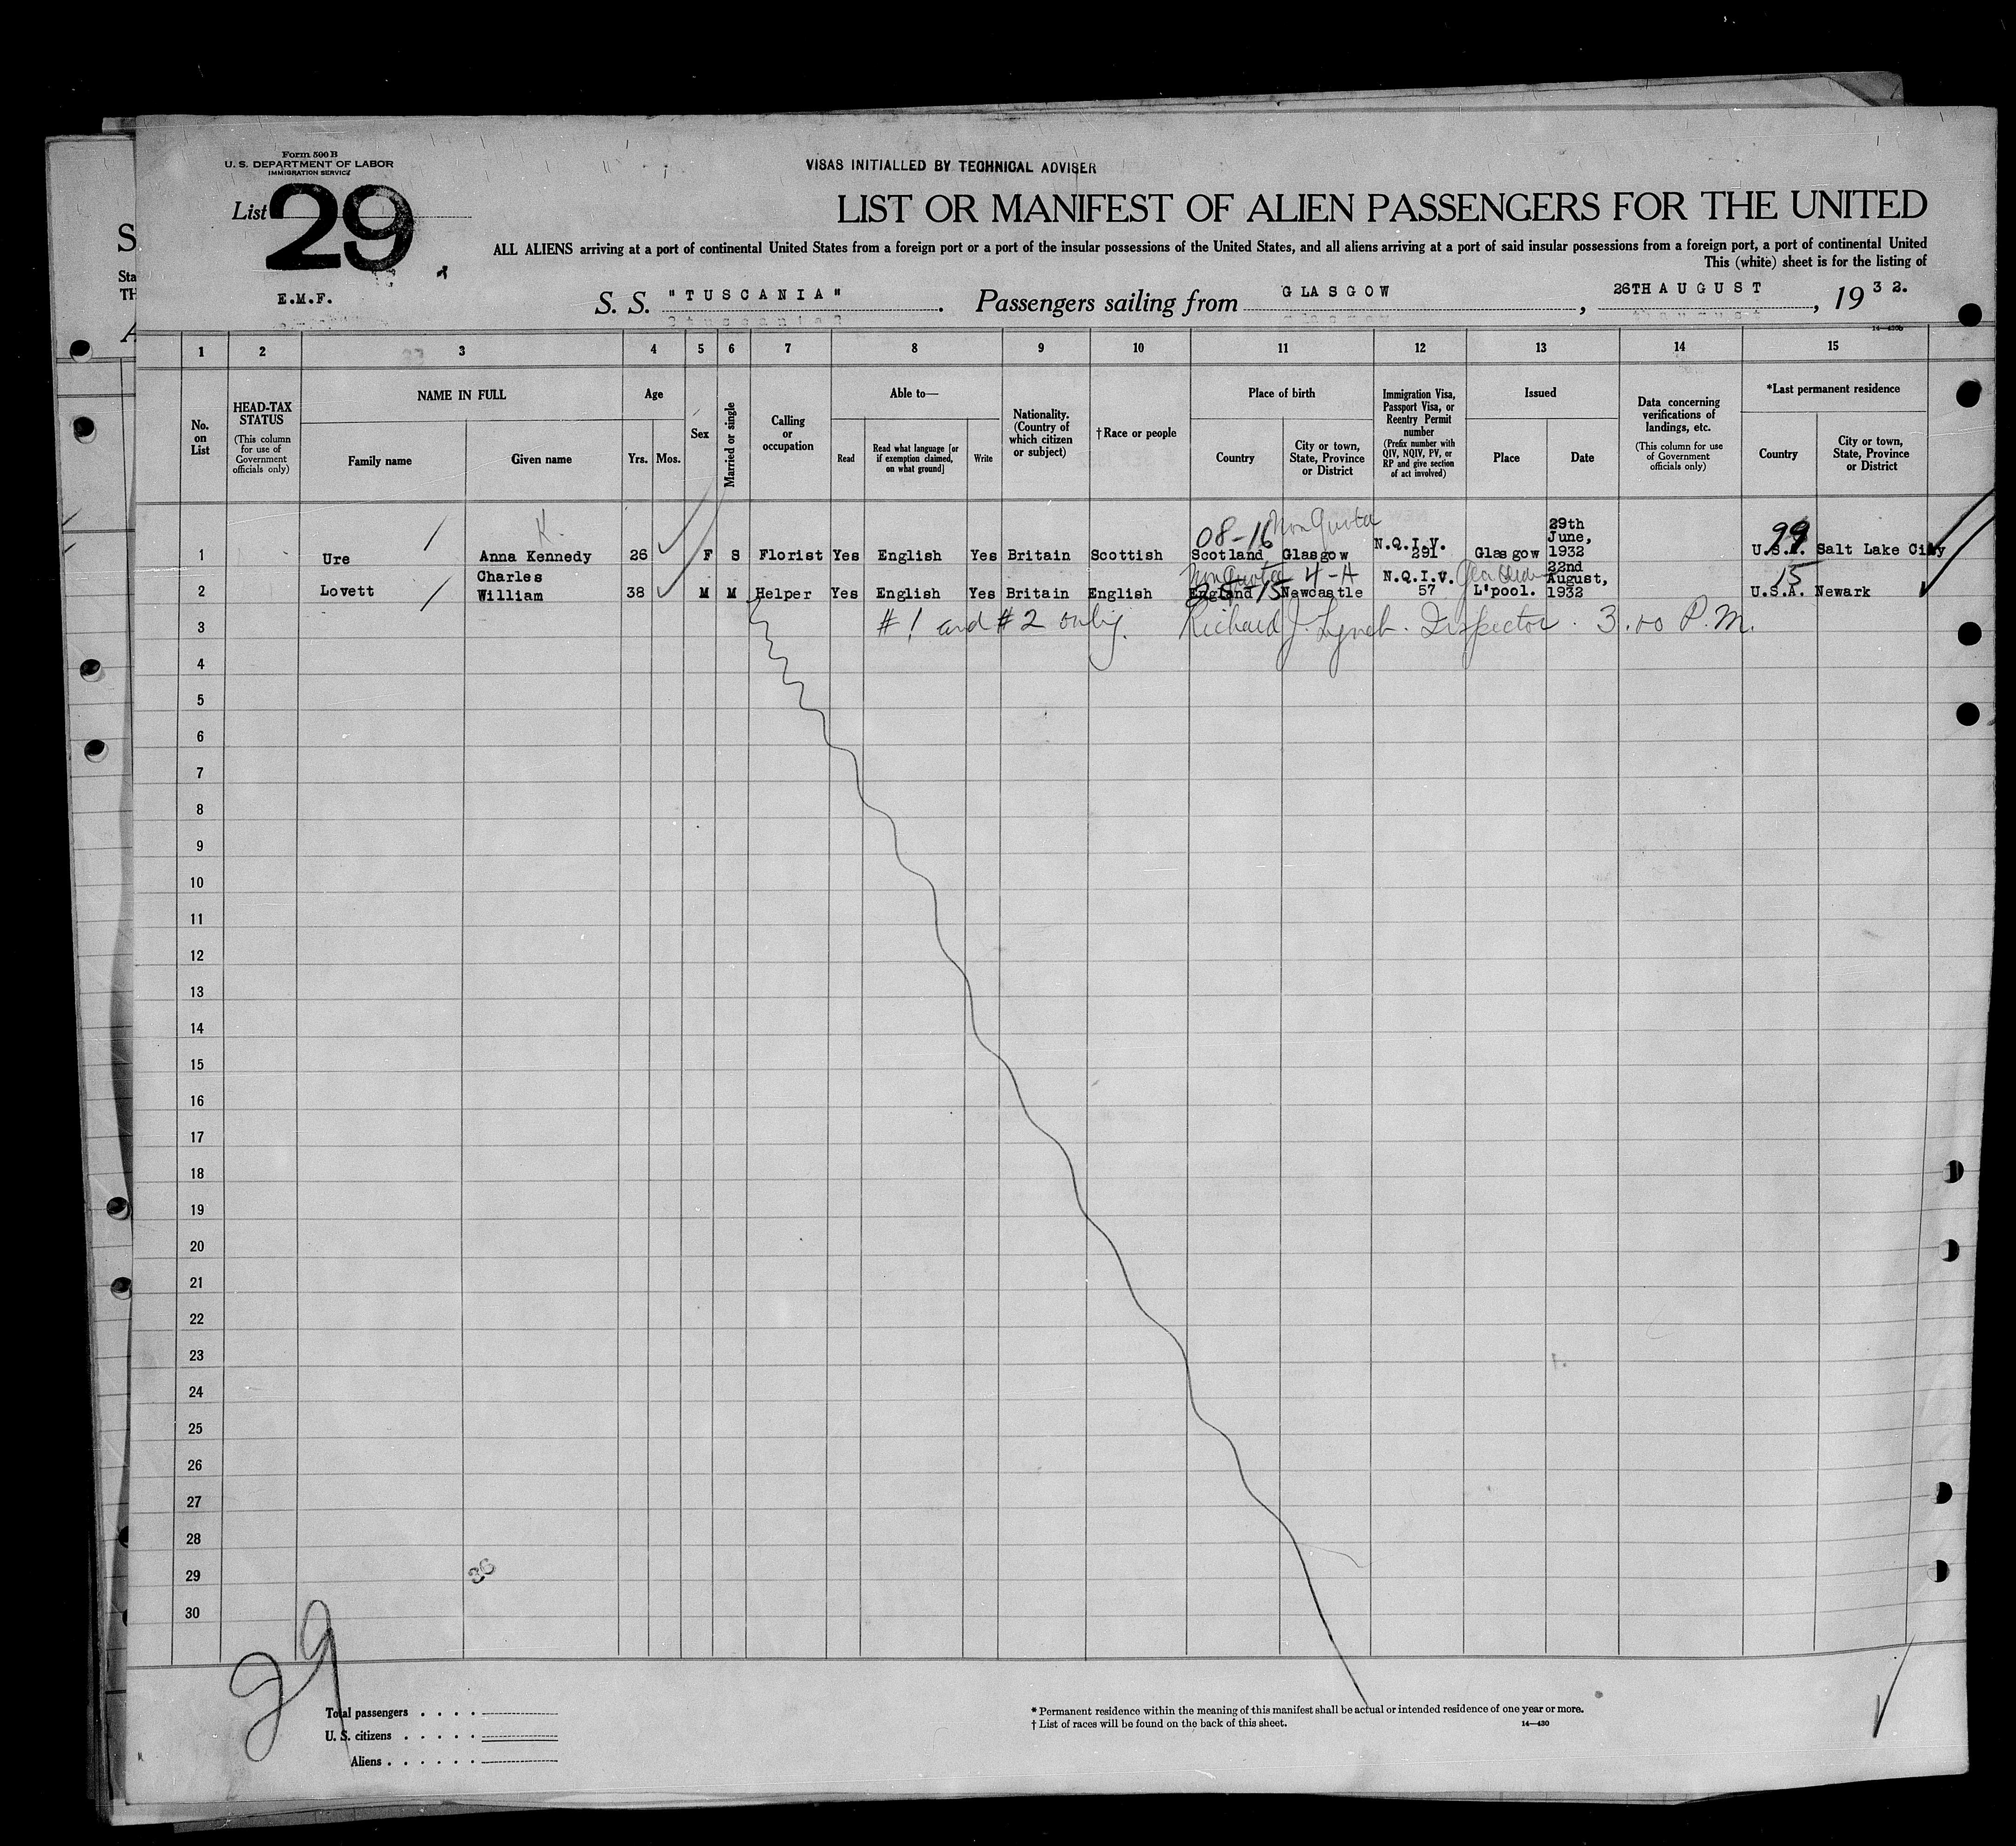 Form 500 B
U. S. DEPARTMENT OF LABOR
IMMIGRATION SERVICE
VISAS INITIALLED BY TECHNICAL ADVISER
List 29
LIST OR MANIFEST OF ALIEN PASSENGERS FOR THE UNITED
ALL ALIENS arriving at a port of continental United States from a foreign port or a port of the insular possessions of the United States, and all aliens arriving at a port of said insular possessions from a foreign port, a port of continental United
This (white) sheet is for the listing of
E.M.F.
S. S. "TUSCANIA". Passengers sailing from GLASGOW, 26TH AUGUST, 1932.
14—430b
1 2 3 4 5 6 7 8 9 10 11 12 13 14 15
No. on List
HEAD-TAX STATUS (This column for use of Government officials only)
NAME IN FULL
Family name Given name
Age
Yrs. Mos.
Sex
Married or single
Calling or occupation
Able to—
Read
Read what language [or if exemption claimed, on what ground]
Write
Nationality. (Country of which citizen or subject)
†Race or people
Place of birth
Country
City or town, State, Province or District
Immigration Visa, Passport Visa, or Reentry Permit number (Prefix number with QIV, NQIV, PV, or RP and give section of act involved)
Issued
Place Date
Data concerning verifications of landings, etc. (This column for use of Government officials only)
*Last permanent residence
Country
City or town, State, Province or District
K. 08-16 Non Quota 99
1 Ure Anna Kennedy 26 F S Florist Yes English Yes Britain Scottish Scotland Glasgow N.Q.I.V. 291 Glasgow 29th June, 1932 U.S.A. Salt Lake City
Non Quota 4-A 15
2 Lovett Charles William 38 M M Helper Yes English Yes Britain English England 15 Newcastle N.Q.I.V. 57 L'pool. 22nd August, 1932 U.S.A. Newark
3 #1 and #2 only. Richard J. Lynch. Inspector. 3.00 P.M.
4
5
6
7
8
9
10
11
12
13
14
15
16
17
18
19
20
21
22
23
24
25
26
27
28
29
30
29
Total passengers
U. S. citizens
Aliens
* Permanent residence within the meaning of this manifest shall be actual or intended residence of one year or more.
† List of races will be found on the back of this sheet.
14—430